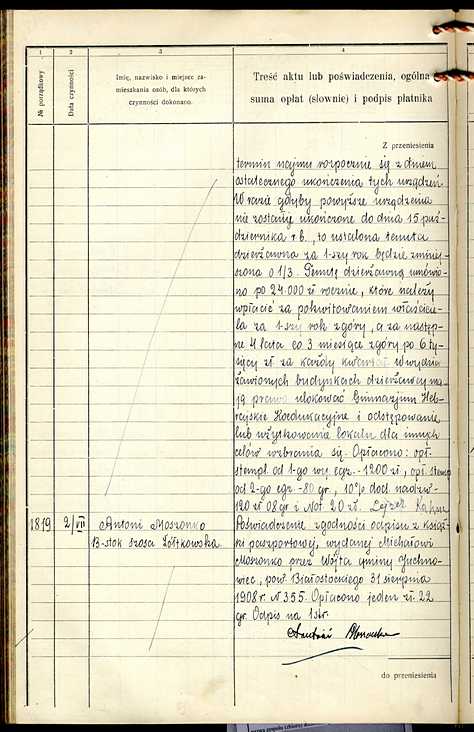 1
2
3
4
№ porządkowy
Data czynności
Imię, nazwisko i miejsce za-
mieszkania osób, dla których
czynności dokonano.
Treść aktu lub poświadczenia, ogólna
suma opłat (słownie) i podpis płatnika
Z przeniesienia
termin najmu rozpocznie się z dniem
ostatecznego ukończenia tych urządzeń.
W razie gdyby powyższe urządzenia
nie zostały ukończone do dnia 15 paź-
dziernika r.b., to ustalona tenuta
dzierżawna za 1-szy rok będzie zmniej-
szona o 1/3. Tenutę dzierżawną umówio-
no po 24.000 zł rocznie, które należy
wpłacić za pokwitowaniem właścicie-
la za 1-szy rok zgóry, a za następ-
ne 4 lata co 3 miesiące zgóry po 6 ty-
sięcy zł za każdy kwartał. W wydzier-
żawionych budynkach dzierżawcy ma-
ją prawo ulokować Gimnazjum Heb-
rajskie Koedukacyjne i odstępowanie
lub użytkowanie lokalu dla innych
celów wzbrania się. Opłacono: opł.
stempl. od 1-go egz. - 1200 zł, opł. stemp.
od 2-go egz. - 80 gr, 10% dod. nadzw.
120 zł 08 gr i Not. 20 zł. Lejzer
1819
2/VII
Antoni Moszonko
B-stok szosa Żółtkowska
Poświadczenie zgodności odpisu z książ-
ki paszportowej, wydanej Michałowi
Moszonko przez Wójta gminy Juchno-
wiec, pow. Białostockiego 31 sierpnia
1908 r. N 355. Opłacono jeden zł. 22
gr. Odpis na 1 str.
do przeniesienia